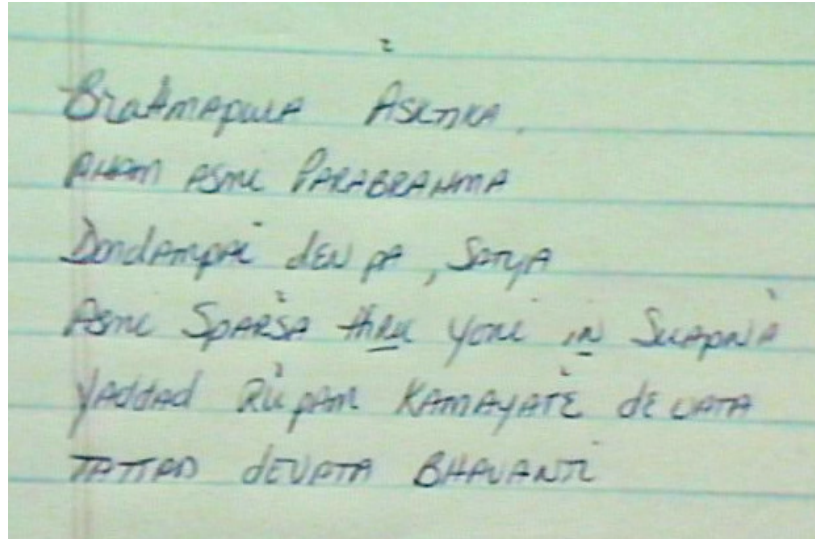 Brahmapura Āsktika.
AHAM ASmi PARABRAHMA
Dondampai den pa, Satya
Asmi SpARŚA thru yoni in SuapnA
YADDAD Rūpam KAMAYATE dEVATA
TATTAD dEVATA BHAVANTI